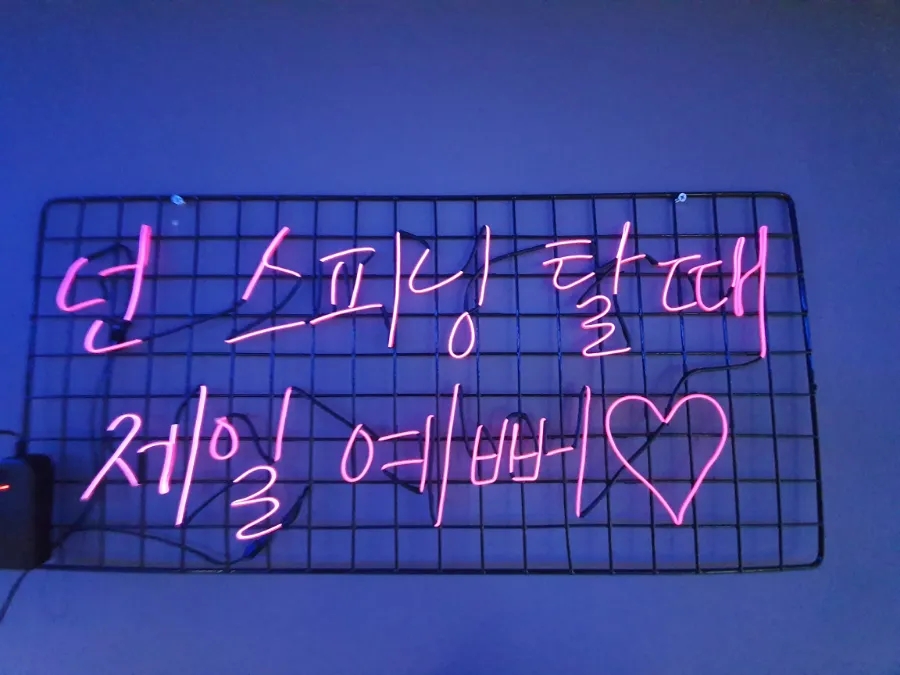 넌 스피닝 탈때
제일 예뻐♡